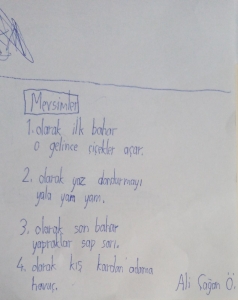 Mevsimler
1. olarak ilk bahar
o gelince çiçekler açar.
2. olarak yaz dondurmayı
yala yam yam.
3. olarak son bahar
yapraklar sap sarı.
4. olarak kış kardan adama
havuç.
Ali Çağan Ö.